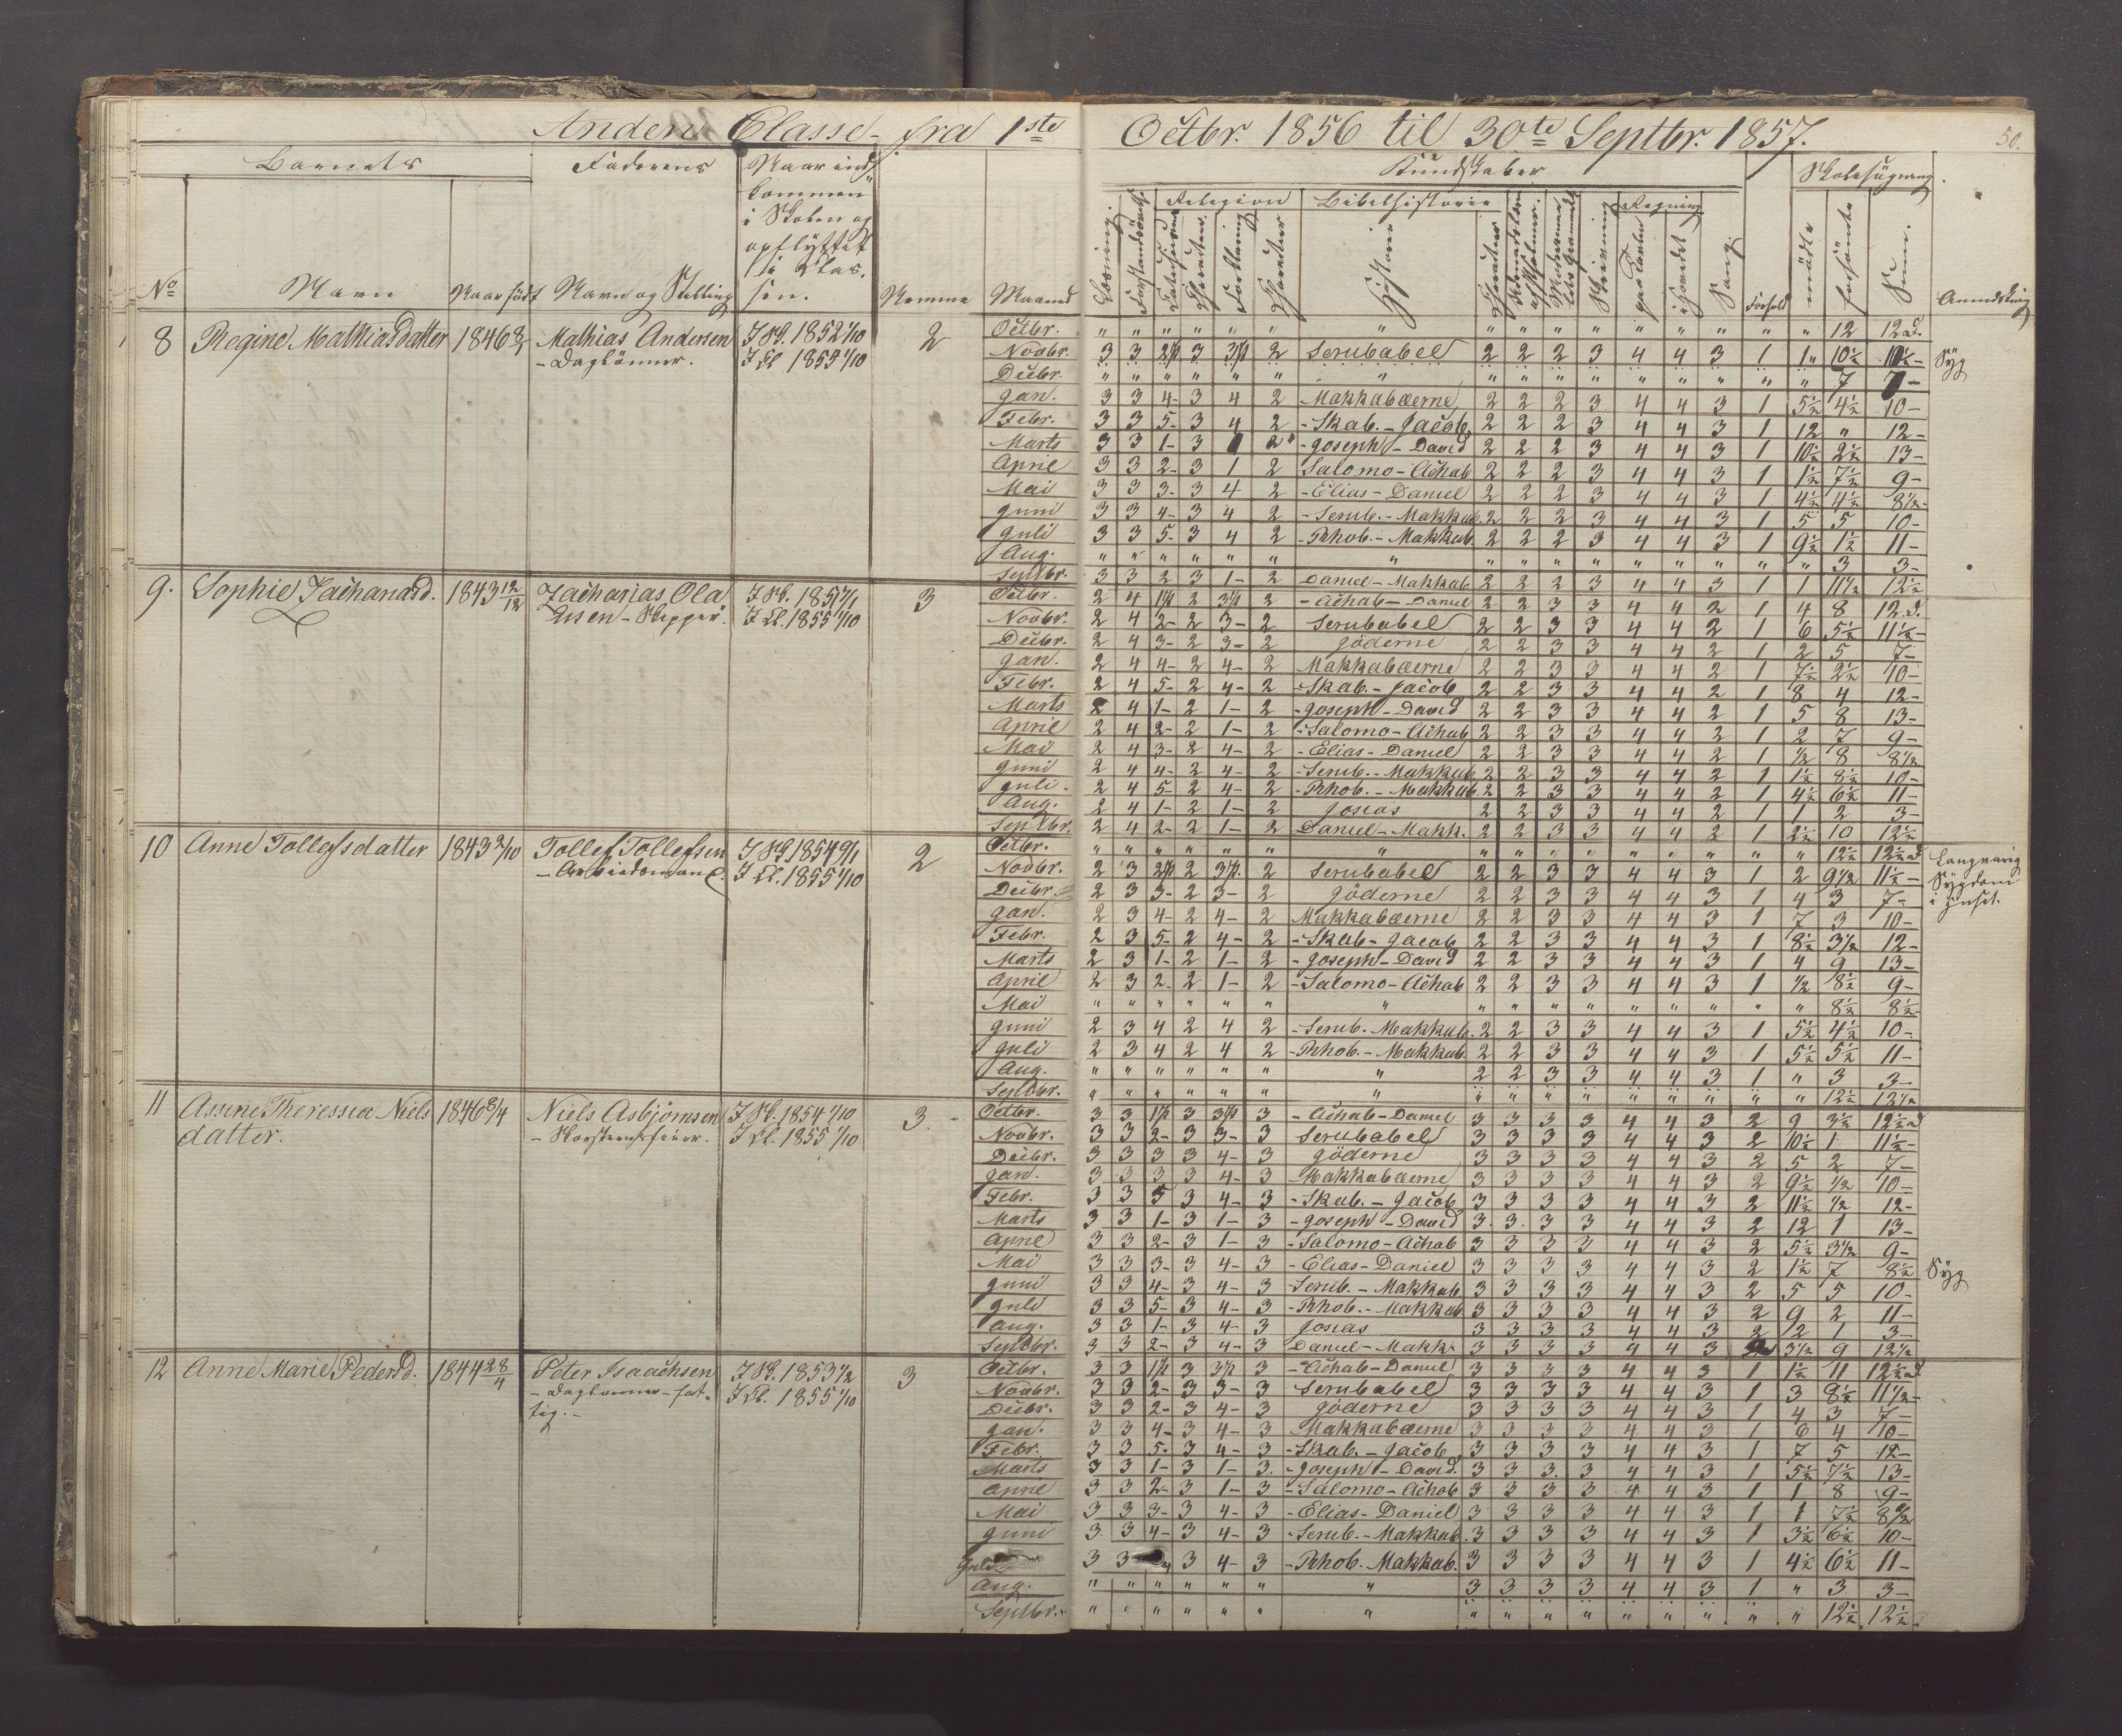 Anden Classe fra 1ste Octbr. 1856 til 30te Septbr. 1857.
50.
Barnets Faderens Naar ind-
kommen
i Skolen og
opflyttet
i Clas-
sen.
Kundskaber Skolesøgning.
Religion Bibelhistorie Regning
No Navn Naar født Navn og Stilling Nemme Maaned
Læsning. Forklaring Karakter Historie Skrivning paa Tavlen i Hovedet Sang. Forhold mødte forsømte Sum. Anmærkning
8 Regine Mathiasdatter 1846 Mathias Andersen
- Daglønner.
I Sk. 1852 1/10
I Cl. 1854 1/10
2
Octbr. " " " " " " " " " " " " " " " " 12 12 d.
Novbr. 3 3 3 2 Serubabel 2 2 2 3 4 4 3 1 1 " 10½ Syg
Decbr. " " " " " " " " " " " " " " " " 7 7 -
Jan. 3 3 4- 3 4 2 Makkabæerne 2 2 2 3 4 4 3 1 5½ 4½ 10-
Febr. 3 3 5- 3 4 2 - Skab. - Jacob 2 2 2 3 4 4 3 1 12 " 12-
Marts 3 3 1- 3 2 - Joseph - David 2 2 2 3 4 4 3 1 10½ 2½ 13-
April 3 3 2- 3 1 2 Salomo - Achab 2 2 2 3 4 4 3 1 1½ 7½ 9-
Mai 3 3 3- 3 4 2 - Elias - Daniel 2 2 2 3 4 4 3 1 4½ 4½ 8½-
Juni 3 3 4- 3 4 2 - Serub. - Makkab. 2 2 2 3 4 4 3 1 5 5 10-
Juli 3 3 5- 3 4 2 - Rhob. - Makkab. 2 2 2 3 4 4 3 1 9½ 1½ 11-
Aug. " " " " " " " " " " " " " " " " 3 3-
Septbr. 3 3 2 3 1- 2 Daniel - Makkab. 2 2 2 3 4 4 3 1 1 11½ 12½
9. Sophie Zachariasd. 1843 12/12 Zacharias Ola
Eisen - Skipper.
I Sk. 1851
I Cl. 1855 1/10
3
Octbr. 2 4 1½ 2 3½ 2 - Achab - Daniel 2 2 3 3 4 4 2 1 4 8 12 d.
Novbr. 2 4 2- 2 3- 2 Serubabel 2 2 3 3 4 4 2 1 6 5½ 11½-
Decbr. 2 4 3- 2 3- 2 Jøderne 2 2 3 3 4 4 2 1 2 5 7-
Jan. 2 4 4- 2 4- 2 Makkabæerne 2 2 3 3 4 4 2 1 7½ 2½ 10-
Febr. 2 4 5- 2 4- 2 - Skab. - Jacob 2 2 3 3 4 4 2 1 8 4 12-
Marts 2 4 1- 2 1- 2 - Joseph - David 2 2 3 3 4 4 2 1 5 8 13-
April 2 4 2- 2 1- 2 - Salomo - Achab 2 2 3 3 4 4 2 1 2 7 9-
Mai 2 4 3- 2 4- 2 - Elias - Daniel 2 2 3 3 4 4 2 1 ½ 8 8½
Juni 2 4 4- 2 4- 2 - Serub. - Makkab. 2 2 3 3 4 4 2 1 1½ 8½ 10-
Juli 2 4 5- 2 4- 2 - Rhob. - Makkab. 2 2 3 3 4 4 2 1 4½ 6½ 11-
Aug. 2 4 1- 2 1- 2 Josias 2 2 3 3 4 4 2 1 1 2 3-
Septbr. 2 4 2- 2 1- 2 Daniel - Makk. 2 2 3 3 4 4 2 1 2½ 10 12½
10 Anne Tollefsdatter 1843 2/10 Tollef Tollefsen
- Arbeidsmand.
I Sk 1854 9/1
I Cl. 1855 1/10
2
Octbr. " " " " " " " " " " " " " " " " 12½ 12½ d Langvarig
Novbr. 2 3 2½ 2 3½ 2 Serubabel 2 2 3 3 4 4 3 1 2 9½ 11½- Sygdom
Decbr. 2 3 3- 2 3- 2 Jøderne 2 2 3 3 4 4 3 1 4 3 7- i Huset.
Jan. 2 3 4- 2 4- 2 Makkabæerne 2 2 3 3 4 4 3 1 7 3 10-
Febr. 2 3 5- 2 4- 2 - Skab - Jacob 2 2 3 3 4 4 3 1 8½ 3½ 12-
Marts 2 3 1- 2 1- 2 - Joseph - David 2 2 3 3 4 4 3 1 4 9 13-
April 2 3 2- 2 1- 2 - Salomo - Achab 2 2 3 3 4 4 3 1 ½ 8½ 9-
Mai " " " " " " " " " " " " " " " " 8½ 8½
Juni 2 3 4 2 4 2 - Serub. Makkab. 2 2 3 3 4 4 3 1 5½ 4½ 10-
Juli 2 3 4 2 4 2 - Rhob. - Makkab. 2 2 3 3 4 4 3 1 5½ 5½ 11-
Aug. " " " " " " " 2 2 3 3 4 4 3 1 " 3 3-
Septbr. " " " " " " " " " " " " " " " " 12½ 12½
11 Assine Theressia Niels
datter.
1846 8/4 Niels Asbjørnsen
- Skorsteensfeier.
I Sk. 1854 1/10
I Cl. 1855 1/10
3.
Octbr. 3 3 1½ 3 3½ 3 - Achab - Daniel 3 3 3 3 4 4 3 2 9 3½ 12½ d
Novbr. 3 3 2- 3 3- 3 Serubabel 3 3 3 3 4 4 3 2 10½ 1 11½-
Decbr. 3 3 3 3 4- 3 Jøderne 3 3 3 3 4 4 3 2 5 2 7-
Jan. 3 3 3 3 4- 3 Makkabæerne 3 3 3 3 4 4 3 2 9½ ½ 10-
Febr. 3 3 5 3 4- 3 - Skab. - Jacob 3 3 3 3 4 4 3 2 11½ ½ 12-
Marts 3 3 1- 3 1- 3 - Joseph - David 3 3 3 3 4 4 3 2 12 1 13-
April 3 3 2- 3 1- 3 - Salomo - Achab 3 3 3 3 4 4 3 2 5½ 3½ 9-
Mai 3 3 3- 3 4- 3 - Elias - Daniel 3 3 3 3 4 4 3 2 1½ 7 8½ Syg
Juni 3 3 4- 3 4- 3 Serub. - Makkab. 3 3 3 3 4 4 3 2 5 5 10-
Juli 3 3 5- 3 4- 3 - Rhob. - Makkab. 3 3 3 3 4 4 3 2 9 2 11-
Aug. 3 3 1- 3 4- 3 Josias 3 3 3 3 4 4 3 2 2 1 3-
Septbr. 3 3 2- 3 4- 3 Daniel - Makk. 3 3 3 3 4 4 3 3½ 9 12½
12 Anne Marie Pedersd. 1844 28/4 Peter Isaachsen
- Daglønner - fat-
tig. -
I Sk. 1853 1/2
I Cl. 1855 1/10
3
Octbr. 3 3 1½ 3 3½ 3 - Achab - Daniel 3 3 3 3 4 4 3 1 1½ 11 12½ d
Novbr. 3 3 2- 3 3- 3 Serubabel 3 3 3 3 4 4 3 1 3 8½ 11½-
Decbr. 3 3 2- 3 4- 3 Jøderne 3 3 3 3 4 4 3 1 4 3 7-
Jan. 3 3 4- 3 4- 3 Makkabæerne 3 3 3 3 4 4 3 1 6 4 10-
Febr. 3 3 5- 3 4- 3 - Skab. - Jacob 3 3 3 3 4 4 3 1 7 5 12-
Marts 3 3 1- 3 1- 3. - Joseph - David. 3 3 3 3 4 4 3 1 5½ 7½ 13-
April 3 3 2- 3 1- 3 - Salomo - Achab 3 3 3 3 4 4 3 1 1 8 9-
Mai 3 3 3- 3 4- 3 - Elias - Daniel 3 3 3 3 4 4 3 1 1 7½ 8½
Juni 3 3 4- 3 4- 3 - Serub. - Makkab. 3 3 3 3 4 4 3 1 3½ 6½ 10-
Juli 3 3 3 4- 3 - Rhob. Makkab. 3 3 3 3 4 4 3 1 4½ 6½ 11-
Aug. " " " " " " " 3 3 3 3 4 4 3 1 " 3 3-
Septbr. " " " " " " " " " " " " " " " " 12½ 12½